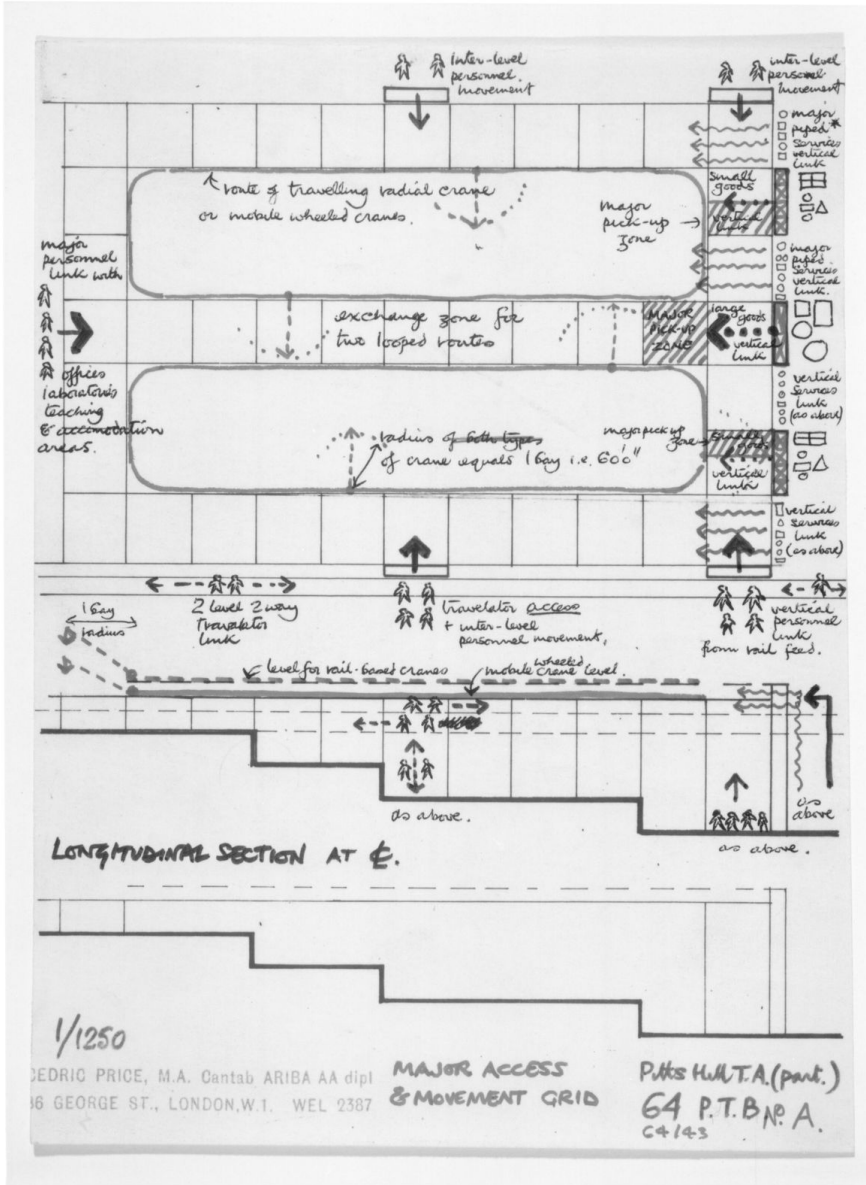 Inter-level
personnel.
movement
inter-level
personnel
movement
major
piped*
services
vertical
link
route of travelling radial crane
or mobile wheeled cranes.
small
goods
vertical
links
major
pick-up
zone
major
personnel
link with
offices
laboratories
teaching
& accomodation
areas.
major
piped
services
vertical
link.
exchange zone for
two looped routes
MAJOR
PICK-UP
ZONE
large
goods
vertical
link
vertical
services
link
(as above)
radius of both types
of crane equals 1 bay i.e. 60'0"
major pick up
zone
small goods
vertical
links
vertical
services
link
(as above)
1 bay
radius
2 level 2 way
travelator
link
travelator access
+ inter-level
personnel movement,
vertical
personnel
link
from rail feed.
level for rail-based cranes
wheeled
mobile crane level.
as above.
as
above
as above.
LONGITUDINAL SECTION AT ℄.
1/1250
CEDRIC PRICE, M.A. Cantab ARIBA AA dipl
36 GEORGE ST., LONDON,W.1. WEL 2387
MAJOR ACCESS
& MOVEMENT GRID
Pitts Hill T.A. (part.)
64 P.T.B No. A.
64/43